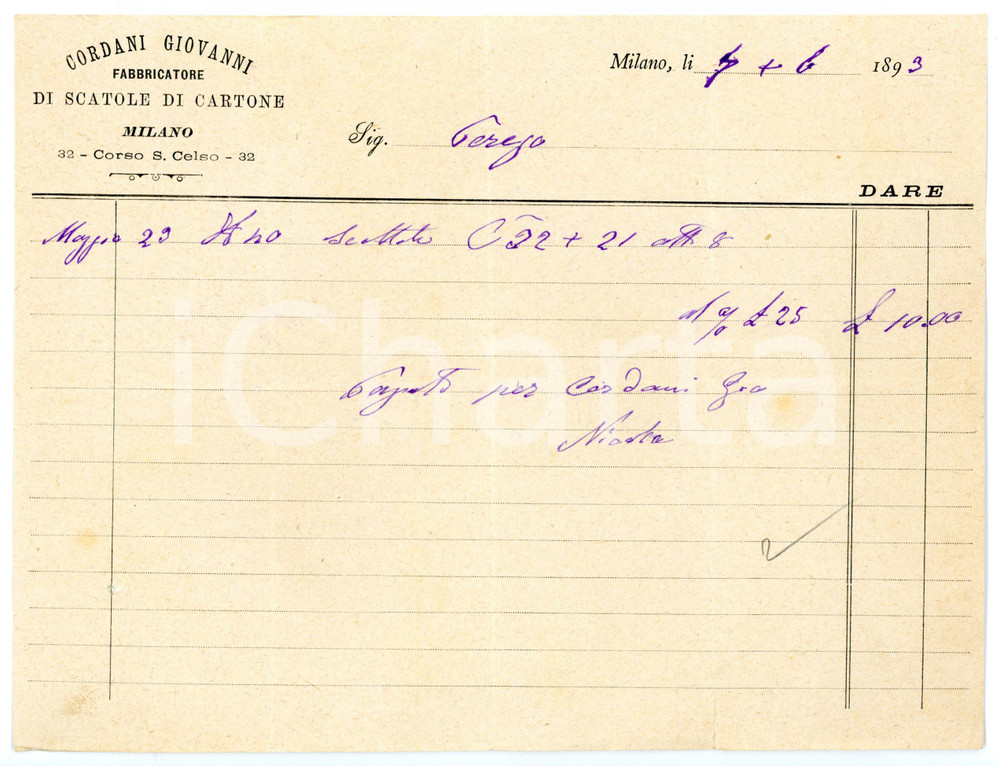 CORDANI GIOVANNI
FABBRICATORE
DI SCATOLE DI CARTONE
MILANO
32 - Corso S. Celso - 32
Milano, li 7 + 6 1893
Sig. Perego
DARE
Maggio 23 N 40 Scatole 22 + 21 att 8
% £ 25 £ 10.00
Pagato per Cordani Gio
iCharta